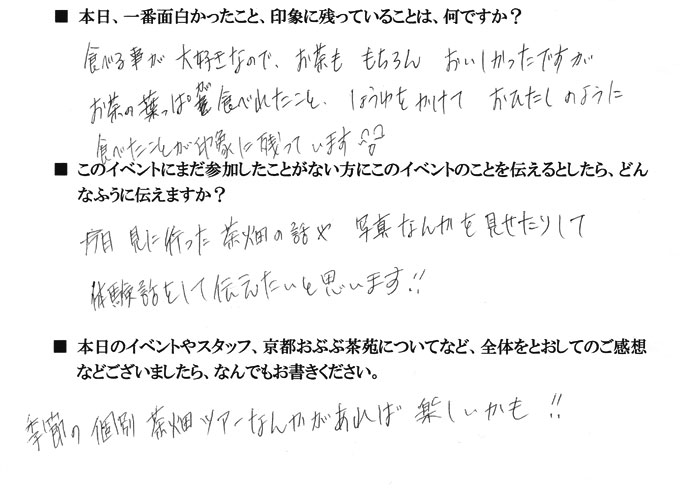 ■ 本日、一番面白かったこと、印象に残っていることは、何ですか？
食べる事が 大好きなので、お茶も もちろん おいしかったですが
お茶の葉っぱが食べれたこと、しょうゆをかけて おひたしのように
食べたことが印象に残っています
■ このイベントにまだ参加したことがない方にこのイベントのことを伝えるとしたら、どん
なふうに伝えますか？
見に行った 茶畑の話や 写真なんかを見せたりして
体験話をして伝えたいと思います!!
■ 本日のイベントやスタッフ、京都おぶぶ茶苑についてなど、全体をとおしてのご感想
などございましたら、なんでもお書きください。
季節の個別 茶畑ツアーなんかがあれば 楽しいかも!!